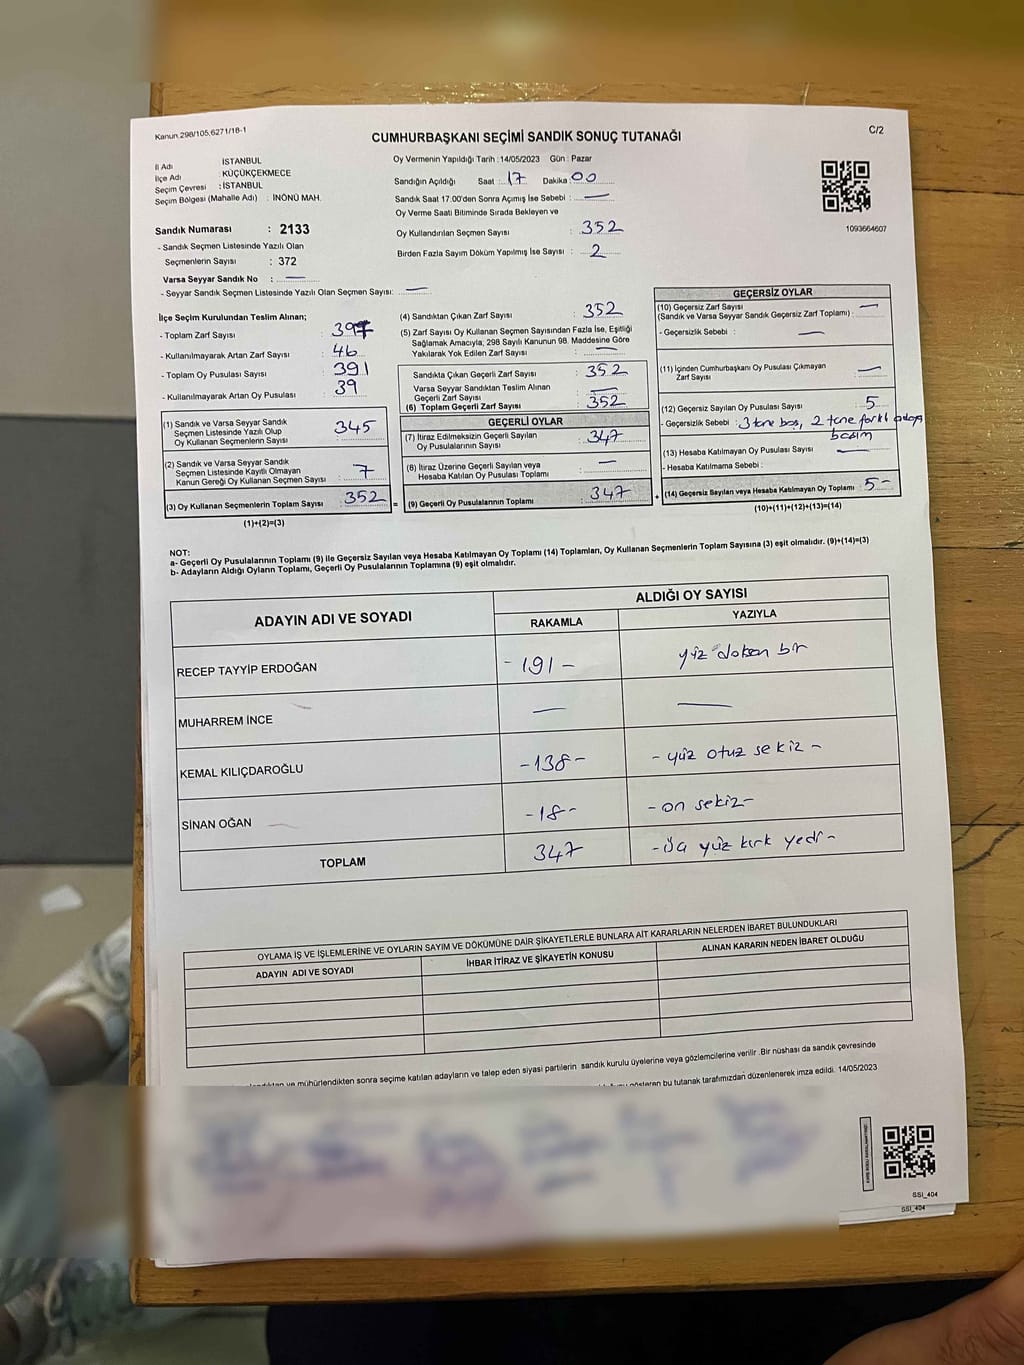 Kanun.298/105,6271/18-1
CUMHURBAŞKANI SEÇİMİ SANDIK SONUÇ TUTANAĞI
C/2
İl Adı İSTANBUL
İlçe Adı : KÜÇÜKÇEKMECE
Seçim Çevresi : İSTANBUL
Seçim Bölgesi (Mahalle Adı) : İNÖNÜ MAH.
Sandık Numarası : 2133
- Sandık Seçmen Listesinde Yazılı Olan
Seçmenlerin Sayısı : 372
Varsa Seyyar Sandık No : —
- Seyyar Sandık Seçmen Listesinde Yazılı Olan Seçmen Sayısı: —
Oy Vermenin Yapıldığı Tarih : 14/05/2023 Gün : Pazar
Sandığın Açıldığı Saat : 17 Dakika : 00
Sandık Saat 17.00'den Sonra Açımış İse Sebebi : —
Oy Verme Saati Bitiminde Sırada Bekleyen ve
Oy Kullandırılan Seçmen Sayısı : 352
Birden Fazla Sayım Döküm Yapılmış İse Sayısı : 2
1093664607
İlçe Seçim Kurulundan Teslim Alınan;
- Toplam Zarf Sayısı : 397
- Kullanılmayarak Artan Zarf Sayısı : 46
- Toplam Oy Pusulası Sayısı : 391
- Kullanılmayarak Artan Oy Pusulası : 39
(1) Sandık ve Varsa Seyyar Sandık
Seçmen Listesinde Yazılı Olup
Oy Kullanan Seçmenlerin Sayısı : 345
(2) Sandık ve Varsa Seyyar Sandık
Seçmen Listesinde Kayıtlı Olmayan
Kanun Gereği Oy Kullanan Seçmen Sayısı : 7
(3) Oy Kullanan Seçmenlerin Toplam Sayısı : 352 =
(1)+(2)=(3)
(4) Sandıktan Çıkan Zarf Sayısı : 352
(5) Zarf Sayısı Oy Kullanan Seçmen Sayısından Fazla İse, Eşitliği
Sağlamak Amacıyla; 298 Sayılı Kanunun 98. Maddesine Göre
Yakılarak Yok Edilen Zarf Sayısı : —
Sandıkta Çıkan Geçerli Zarf Sayısı : 352
Varsa Seyyar Sandıktan Teslim Alınan
Geçerli Zarf Sayısı : —
(6) Toplam Geçerli Zarf Sayısı : 352
GEÇERLİ OYLAR
(7) İtiraz Edilmeksizin Geçerli Sayılan
Oy Pusulalarının Sayısı : 347
(8) İtiraz Üzerine Geçerli Sayılan veya
Hesaba Katılan Oy Pusulası Toplamı : —
(9) Geçerli Oy Pusulalarının Toplamı : 347 +
GEÇERSİZ OYLAR
(10) Geçersiz Zarf Sayısı
(Sandık ve Varsa Seyyar Sandık Geçersiz Zarf Toplamı) : —
- Geçersizlik Sebebi : —
(11) İçinden Cumhurbaşkanı Oy Pusulası Çıkmayan
Zarf Sayısı : —
(12) Geçersiz Sayılan Oy Pusulası Sayısı : 5
- Geçersizlik Sebebi : 3 tane boş, 2 tane farklı adaya
basım
(13) Hesaba Katılmayan Oy Pusulası Sayısı : —
- Hesaba Katılmama Sebebi :
(14) Geçersiz Sayılan veya Hesaba Katılmayan Oy Toplamı : 5-
(10)+(11)+(12)+(13)=(14)
NOT:
a- Geçerli Oy Pusulalarının Toplamı (9) ile Geçersiz Sayılan veya Hesaba Katılmayan Oy Toplamı (14) Toplamları, Oy Kullanan Seçmenlerin Toplam Sayısına (3) eşit olmalıdır. (9)+(14)=(3)
b- Adayların Aldığı Oyların Toplamı, Geçerli Oy Pusulalarının Toplamına (9) eşit olmalıdır.
ADAYIN ADI VE SOYADI ALDIĞI OY SAYISI
RAKAMLA YAZIYLA
RECEP TAYYİP ERDOĞAN - 191 - yüz doksan bir
MUHARREM İNCE — —
KEMAL KILIÇDAROĞLU - 138 - - yüz otuz sekiz -
SİNAN OĞAN - 18 - - on sekiz -
TOPLAM 347 - Üç yüz kırk yedi -
OYLAMA İŞ VE İŞLEMLERİNE VE OYLARIN SAYIM VE DÖKÜMÜNE DAİR ŞİKAYETLERLE BUNLARA AİT KARARLARIN NELERDEN İBARET BULUNDUKLARI
ADAYIN ADI VE SOYADI İHBAR İTİRAZ VE ŞİKAYETİN KONUSU ALINAN KARARIN NEDEN İBARET OLDUĞU
ve mühürlendikten sonra seçime katılan adayların ve talep eden siyasi partilerin sandık kurulu üyelerine veya gözlemcilerine verilir .Bir nüshası da sandık çevresinde
gösteren bu tutanak tarafımızdan düzenlenerek imza edildi. 14/05/2023
SSI_404
SSI_404